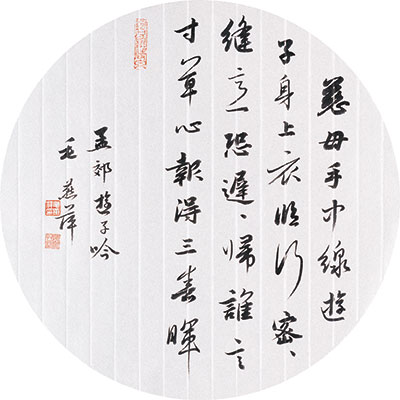 慈母手中線遊
子身上衣臨行密〻
縫意恐遲〻歸誰言
寸草心報得三春暉
孟郊遊子吟
毛燕萍